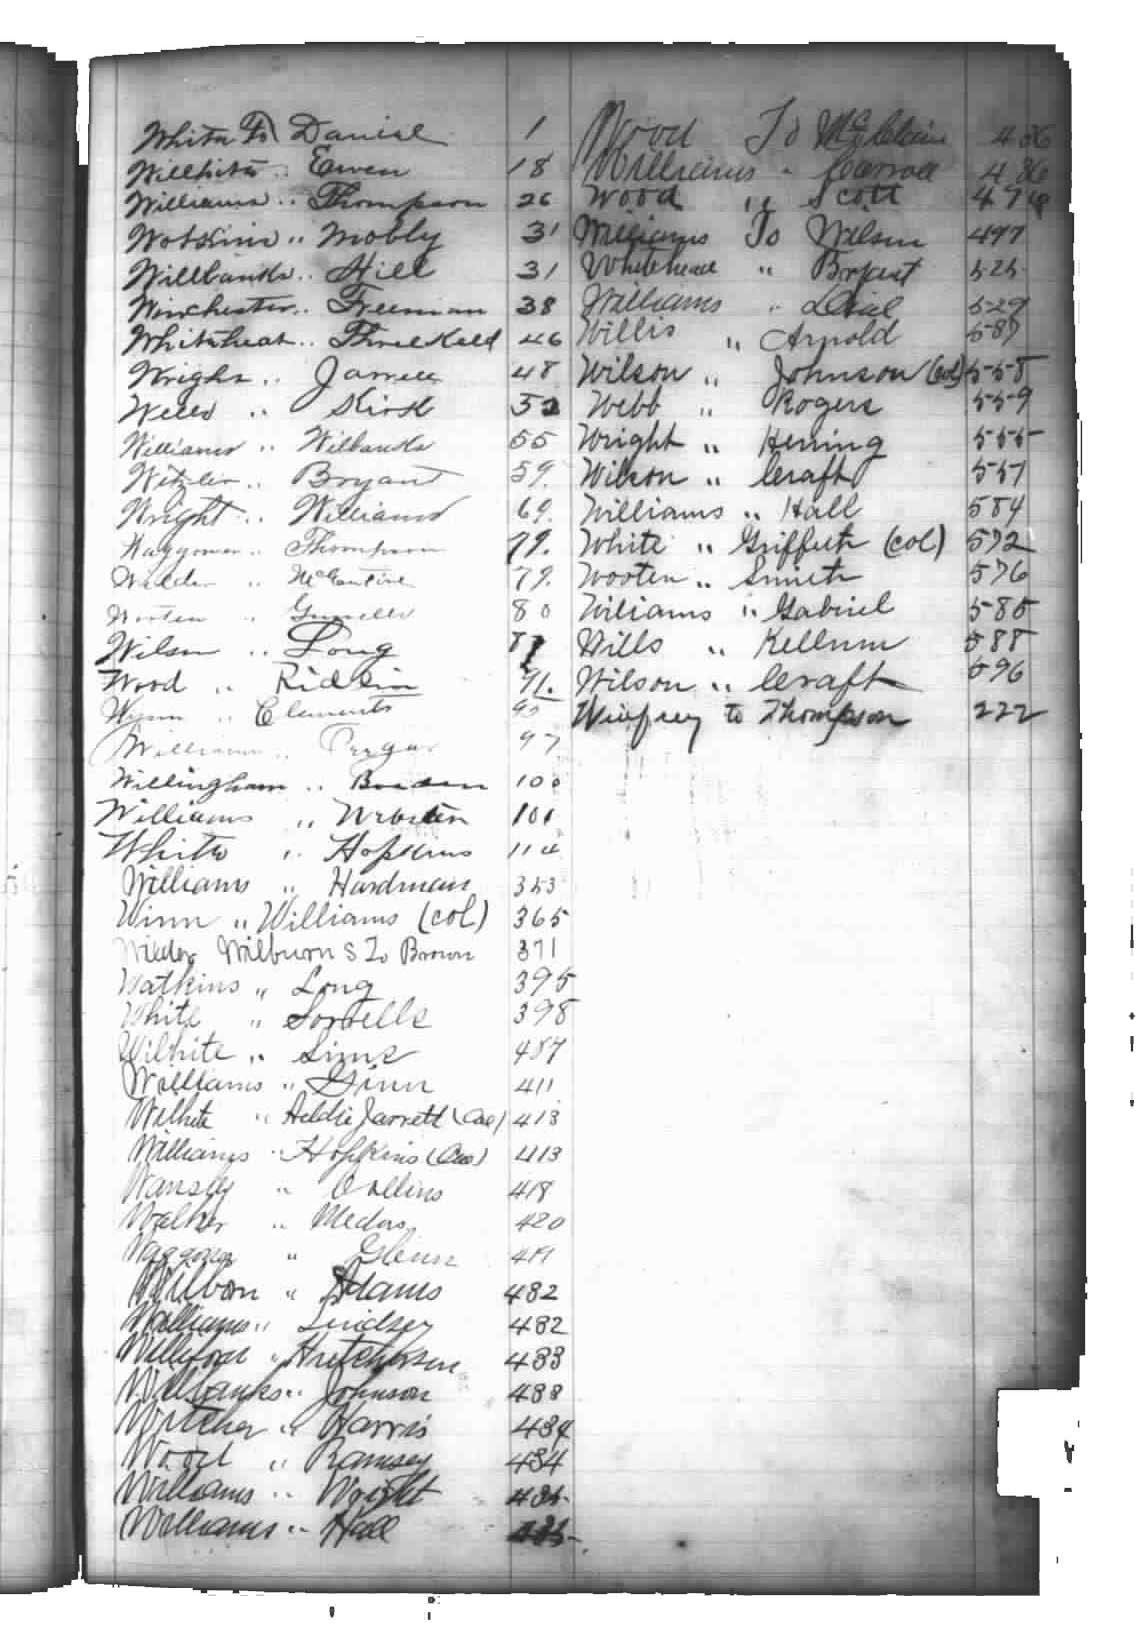 White To Daniel 1
Willhite .. Ewen 18
Williams .. Thompson 26
Watkins .. Mobly 31
Willbanks .. Hill 31
Winchester .. Freeman 38
Whitehead .. Threlkeld 46
Wright .. Jarrell 48
Wells .. Kirk 52
Williams .. Wilbanks 55
.. Bryant 59.
Wright .. Williams 69.
.. Thompson 79.
Wilder .. McEntire 79.
Wooten .. 80
Wilson .. Long
Wood .. 91.
Wynn .. Clements 95
Williams .. 97
Willingham .. 100
Williams .. Webster 101
White .. Hopkins 114
Williams .. Hardman 353
Winn .. Williams (col) 365
Wilburn S To Brown 371
Watkins .. Long 395
White .. Sorrells 398
Wilhite .. Sims 407
Williams .. Ginn 411
Wilhite .. Addie Jarrett (Col) 413
Williams .. Hopkins (Col) 413
Wansley .. Collins 418
Walker .. Medors 420
Waggoner .. Glenn 419
Wilbon .. Adams 432
Williams .. Lindsey 432
Williford .. Hutcherson 433
Willbanks .. Johnson 433
.. Harris 434
Wood .. Ramsey 434
Williams .. Wright 435
Williams .. Hall 435
Wood To McClain 436
Williams .. Carroll 436
Wood .. Scott 476
Williams To Wilson 497
Whitehead .. Bryant 525
Williams .. Dial 529
Willis .. Arnold 537
Wilson .. Johnson (col) 558
Webb .. Rogers 559
Wright .. Herring 555
Wilson .. Craft 557
Williams .. Hall 584
White .. Griffeth (col) 572
Wooten .. Smith 576
Williams .. Gabriel 585
Wills .. Kellum 588
Wilson .. Craft 596
Winfrey to Thompson 222